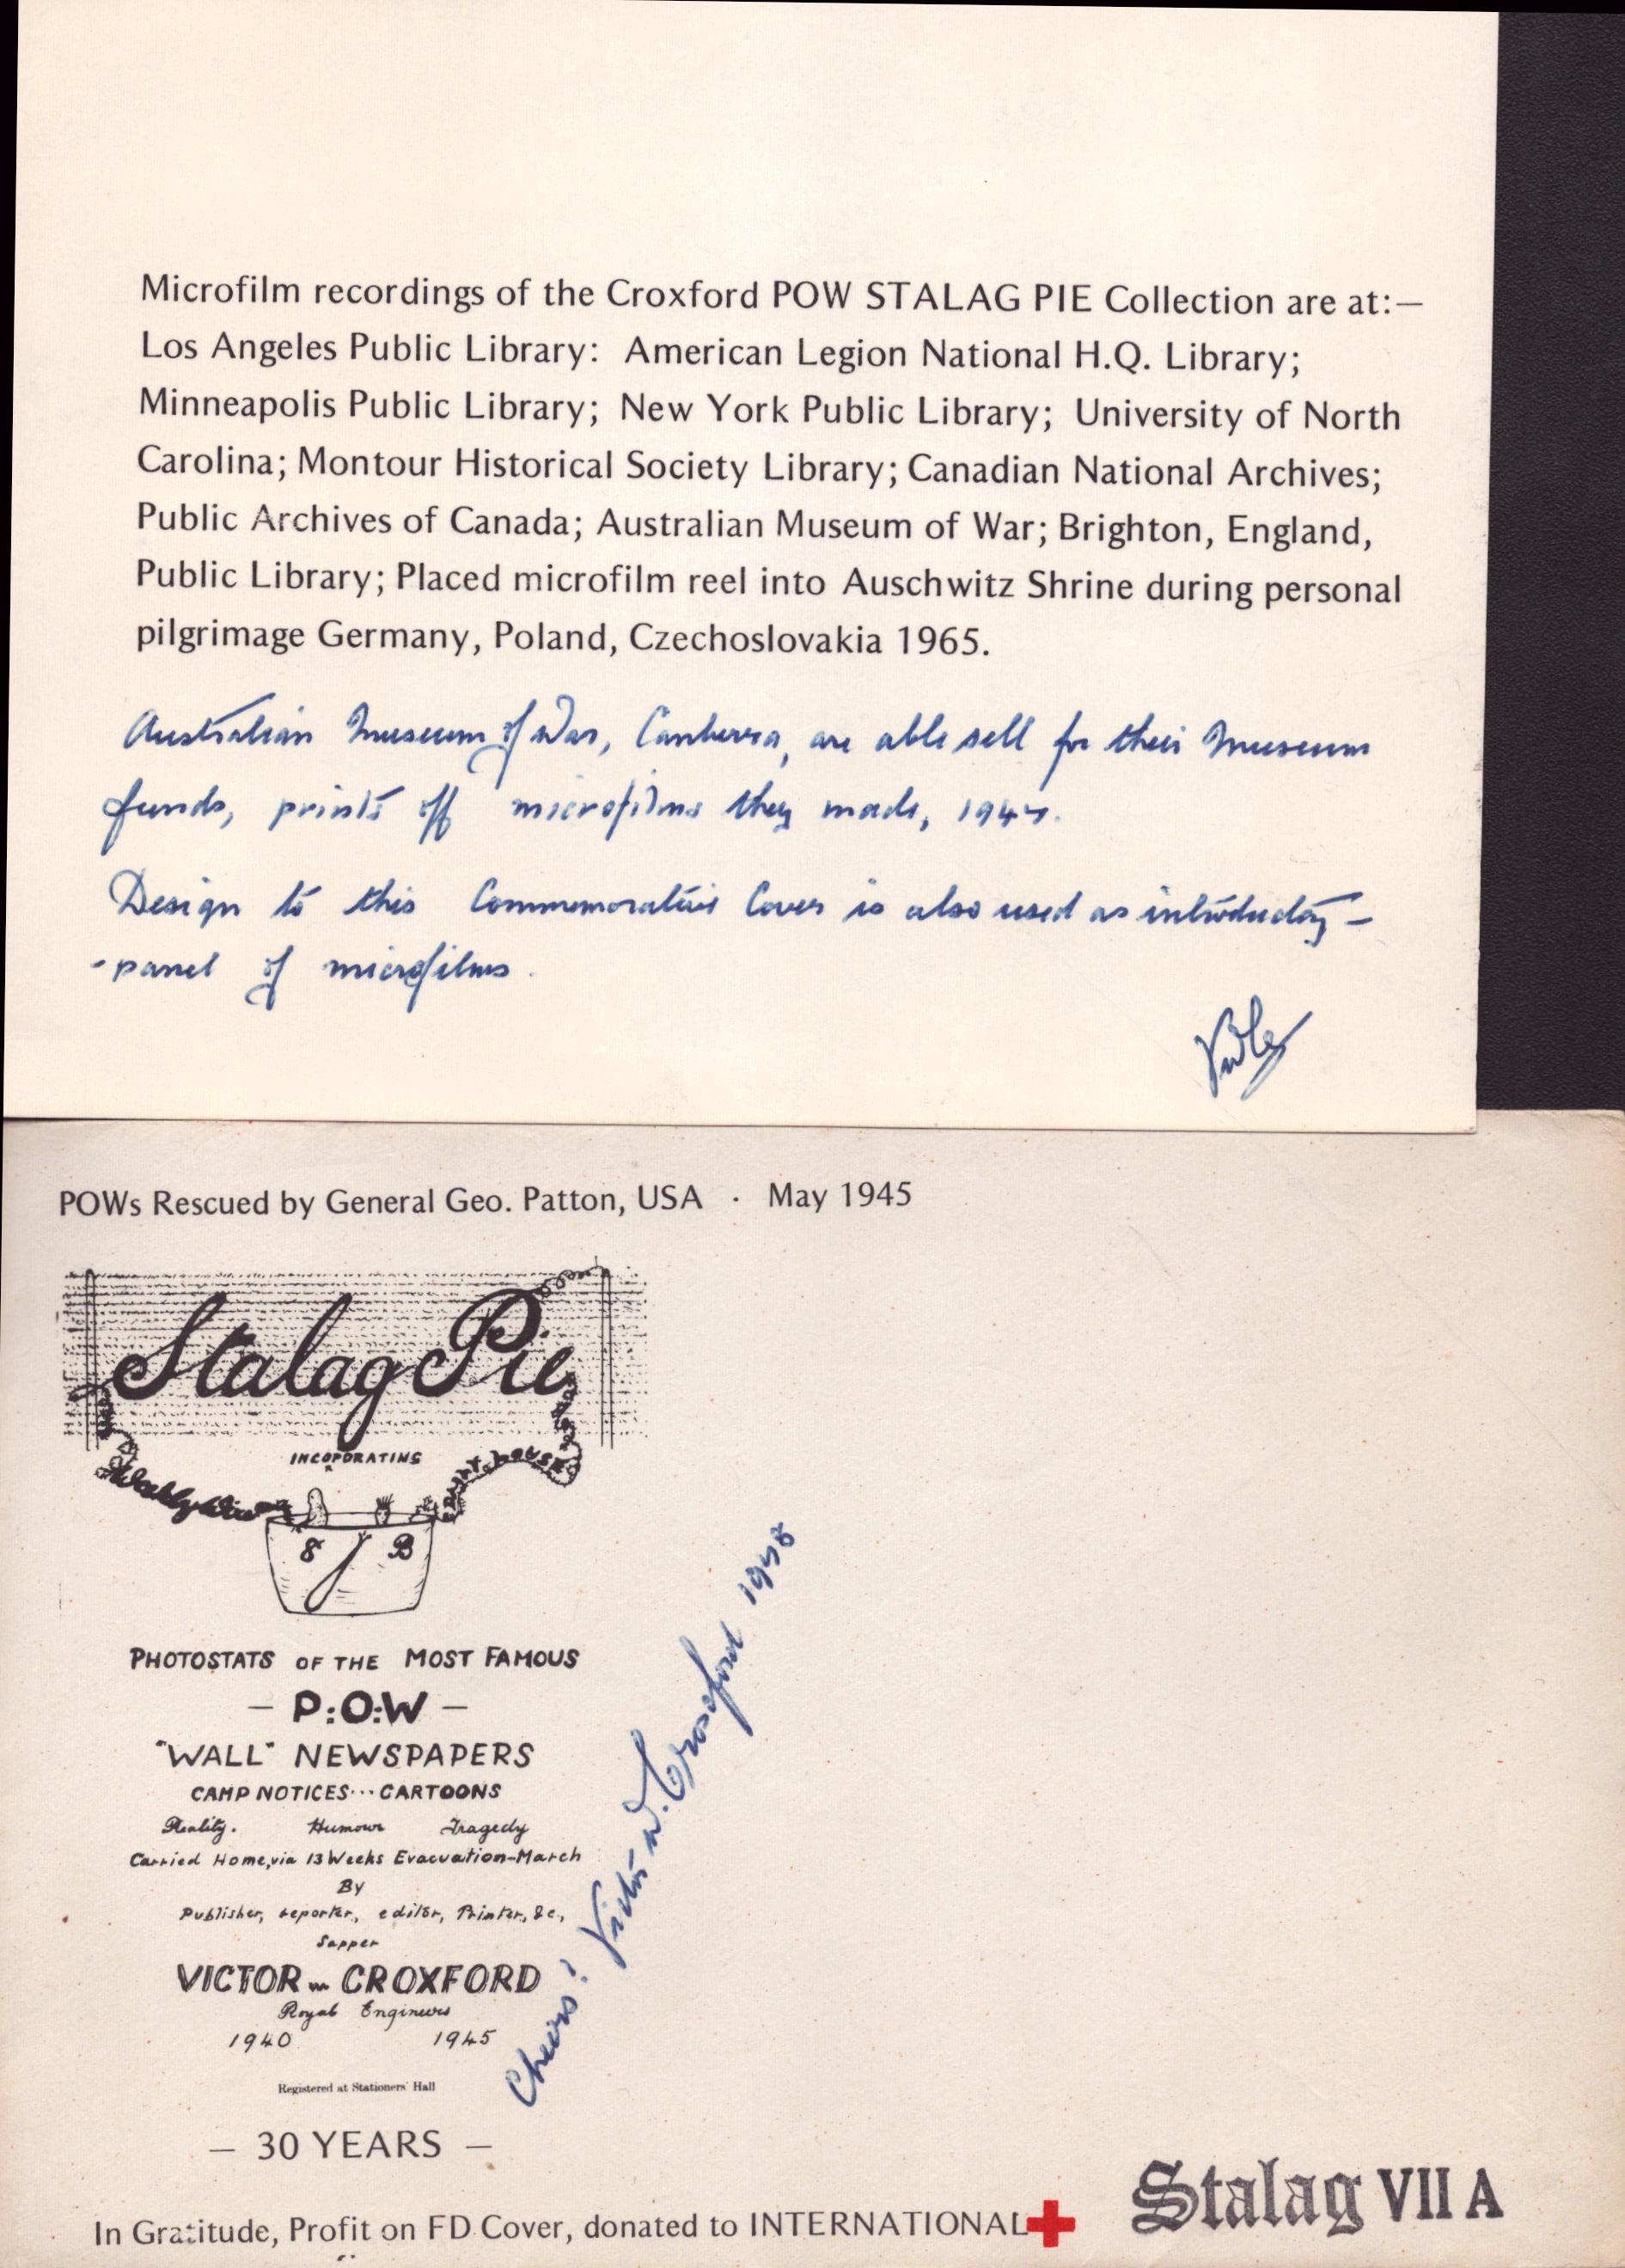 Microfilm recordings of the Croxford POW STALAG PIE Collection are at:—
Los Angeles Public Library: American Legion National H.Q. Library;
Minneapolis Public Library; New York Public Library; University of North
Carolina; Montour Historical Society Library; Canadian National Archives;
Public Archives of Canada; Australian Museum of War; Brighton, England,
Public Library; Placed microfilm reel into Auschwitz Shrine during personal
pilgrimage Germany, Poland, Czechoslovakia 1965.
Australian Museum of War, Canberra, are able sell for their Museum
funds, prints off microfilms they made,
Design to this Commemorative Cover is also used as introductory -
- panel of microfilms.
POWs Rescued by General Geo. Patton, USA · May 1945
Stalag Pie
INCOPORATING
8 B
PHOTOSTATS OF THE MOST FAMOUS
— P:O:W —
"WALL" NEWSPAPERS
CAMP NOTICES... CARTOONS
Reality. Humour Tragedy
Carried Home, via 13 Weeks Evacuation-March
By
Publisher, reporter, editor, Printer, &c.,
Sapper
VICTOR W CROXFORD
Royal Engineers
1940 1945
Registered at Stationers' Hall
Cheers! Victor W. Croxford
— 30 YEARS —
In Gratitude, Profit on FD Cover, donated to INTERNATIONAL
Stalag VII A